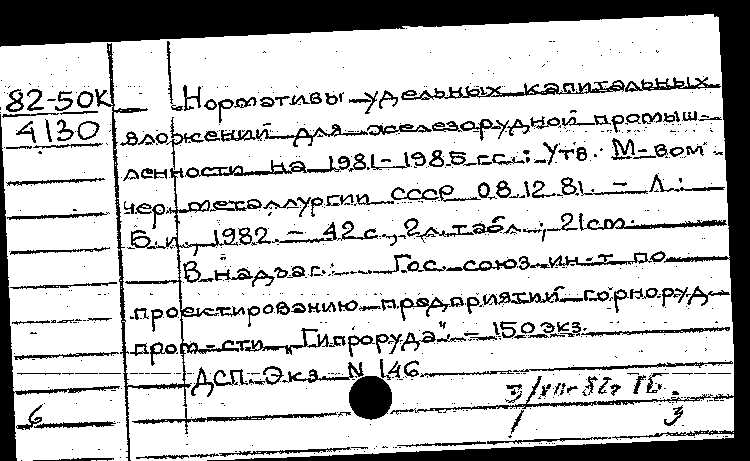 82-50К
4130
Нормативы удельных капитальных
вложений для железорудной промыш-
ленности на 1981-1985 гг.: Утв. М-вом
чер. металлургии СССР 08.12.81. - Л.:
Б.и., 1982. - 42 с., 2 л. табл.; 21 cm.
В надзаг.: Гос. союз. ин-т по
проектированию предприятий горноруд.
пром-сти „Гипроруда". - 150 экз.
ДСП. Экз. N 146
6
3